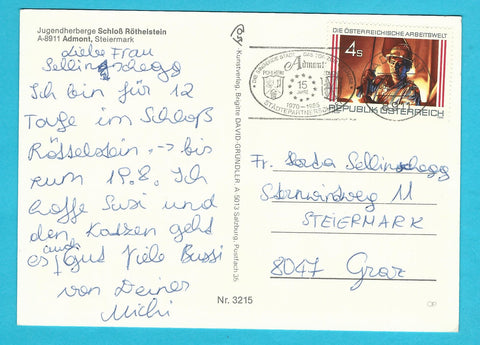 Jugendherberge Schloß Röthelstein
A-8911 Admont, Steiermark
Liebe Frau
Sellinschegg
Ich bin für 12
Tage im Schloß
Röttelstein --> bis
zum 19.8. Ich
hoffe Susi und
den Katzen geht
es auch gut Viele Bussi
von Deiner
Michi
Kunstverlag, Brigitte DAVID-GRÜNDLER A 5013 Salzburg, Postfach 26
Nr. 3215
Admont
15
JAHRE
1970-1985
STÄDTEPARTNERSCHAFT
DIE ÖSTERREICHISCHE ARBEITSWELT
4s
REPUBLIK ÖSTERREICH
Fr. Sellinschegg
Sternwirtweg 11
STEIERMARK
8047 Graz